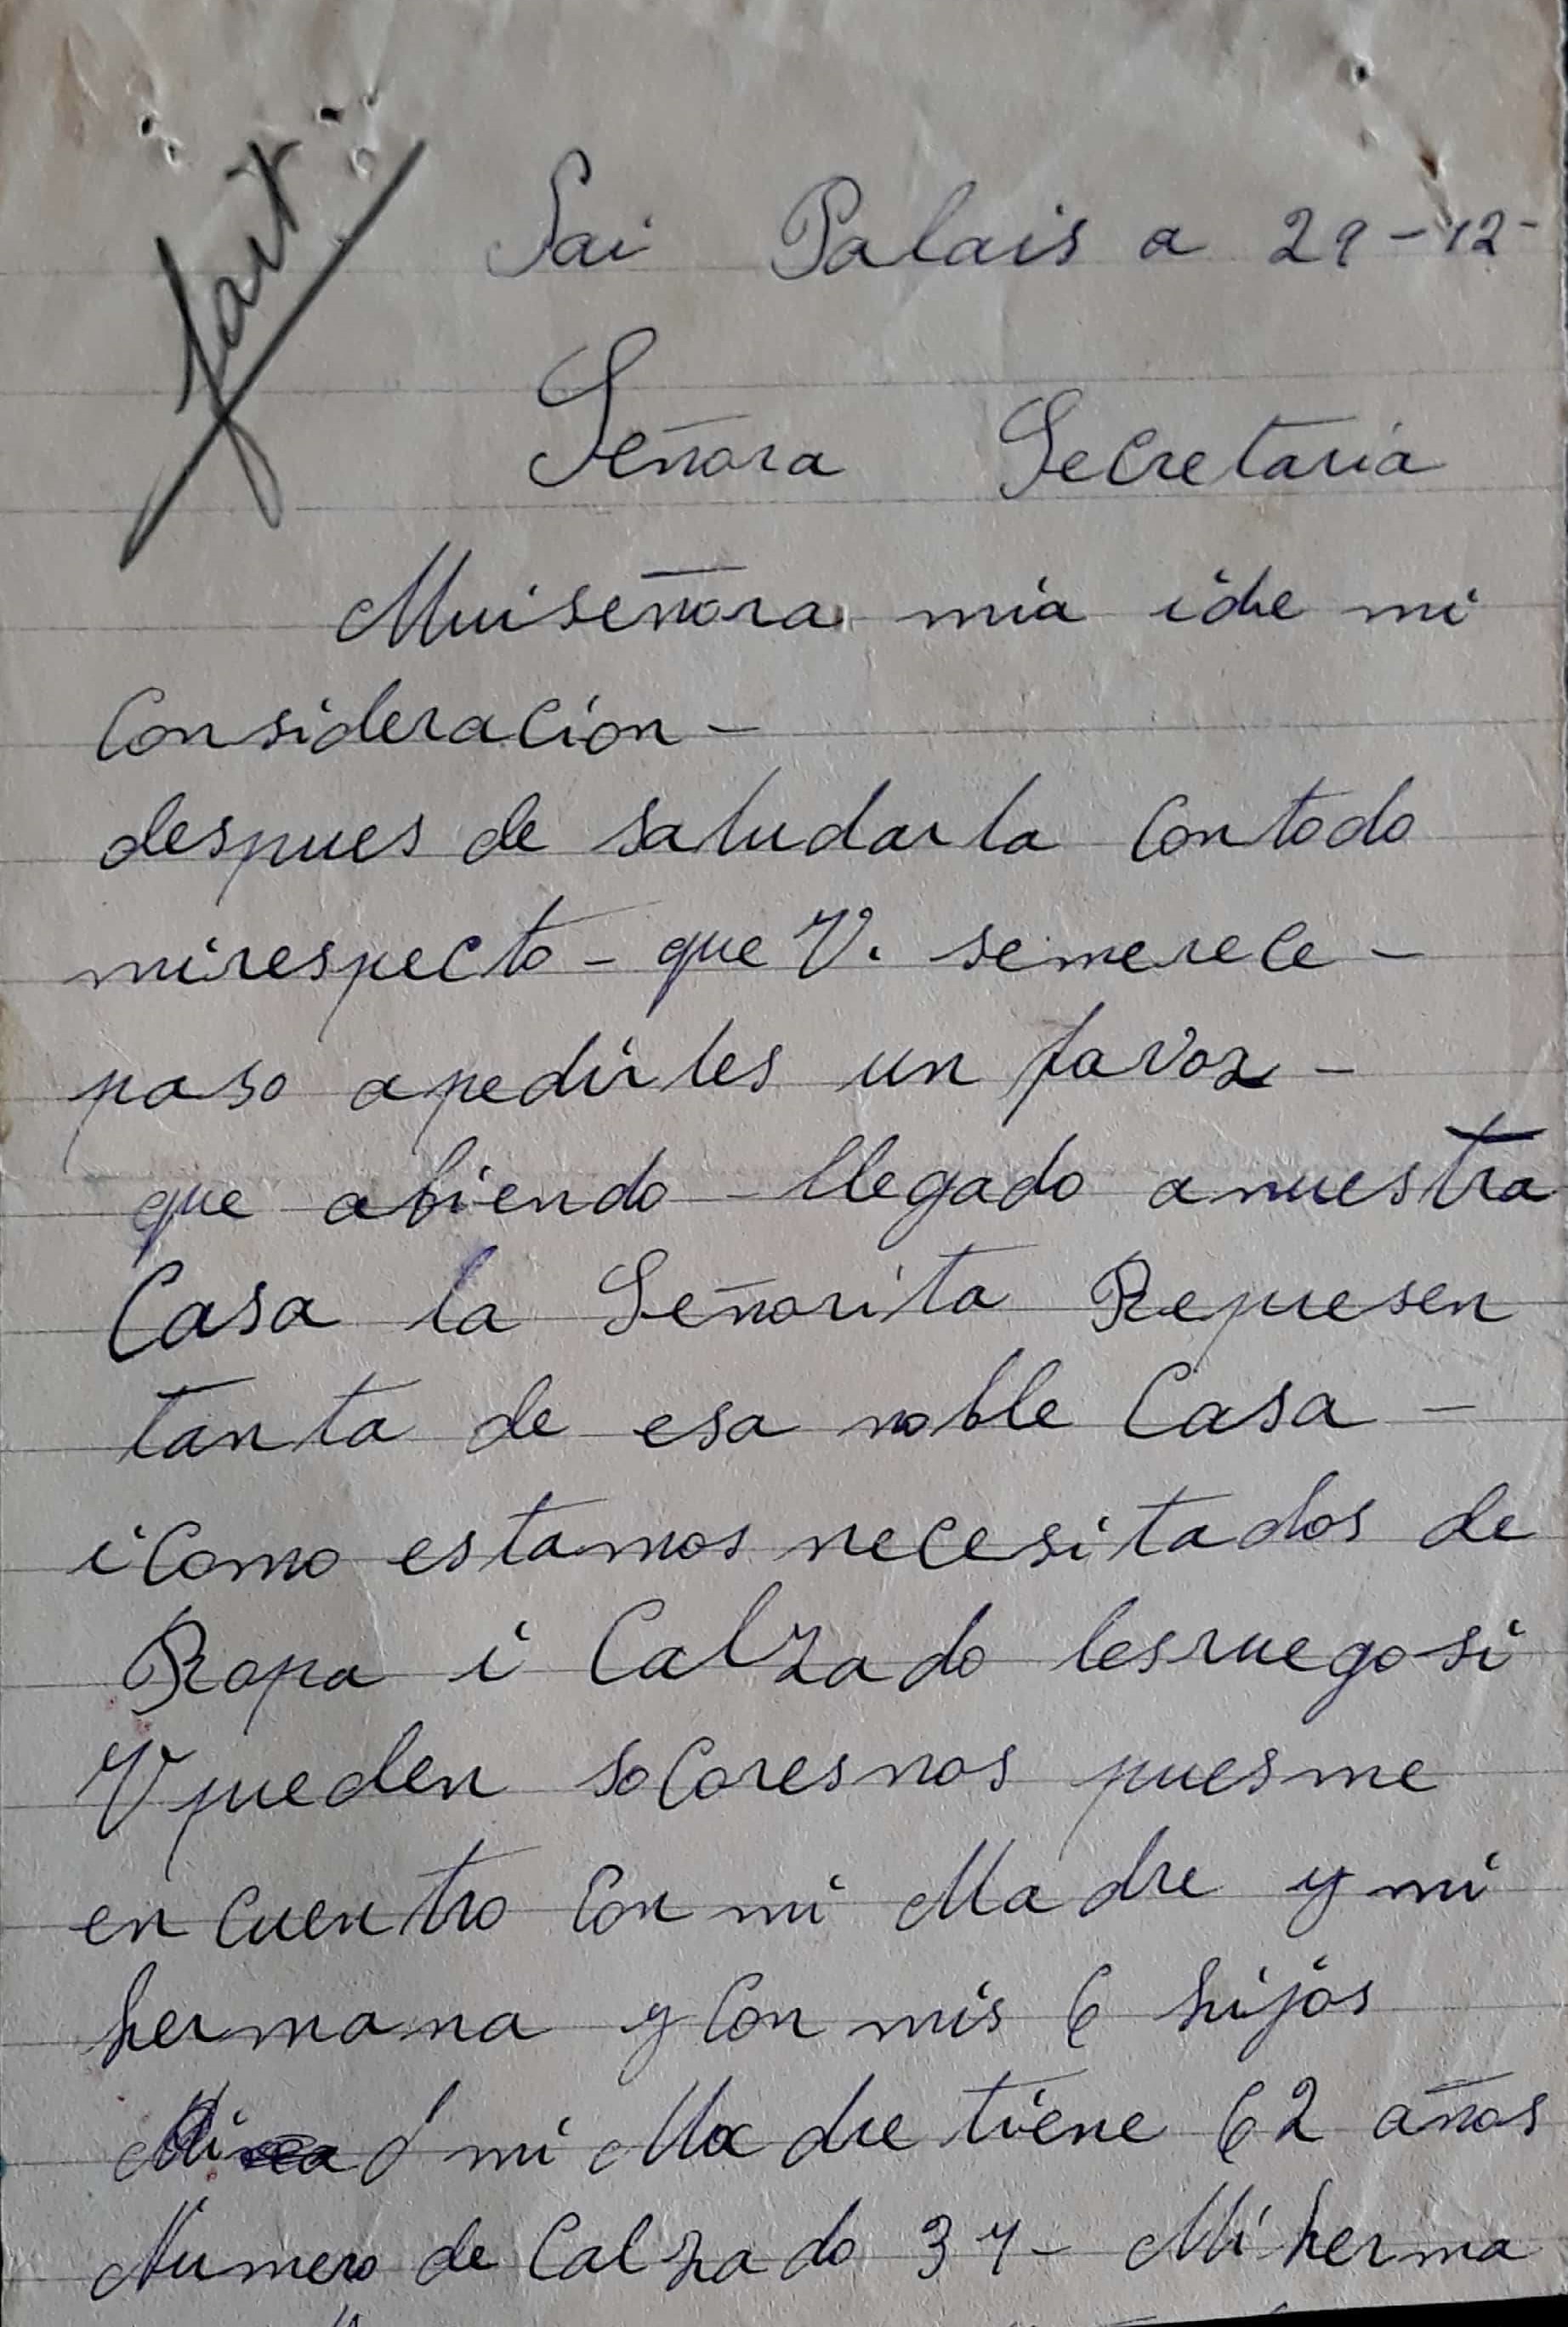 fait
Sai Palais a 29-12-
Señora Secretaria
Mui señora mia i de mi
Consideracion -
despues de saludarla Con todo
mi respecto - que V. se merece -
paso a pedirles un favor -
que abiendo - llegado a nuestra
Casa la Señorita Represen
tanta de esa noble Casa -
i Como estamos necesitados de
Ropa i Calzado les ruego si
V pueden socoresnos pues me
encuentro Con mi Madre y mi
hermana y Con mis 6 hijos
mi Madre tiene 62 años
Numero de Calzado 37 - Mi herma